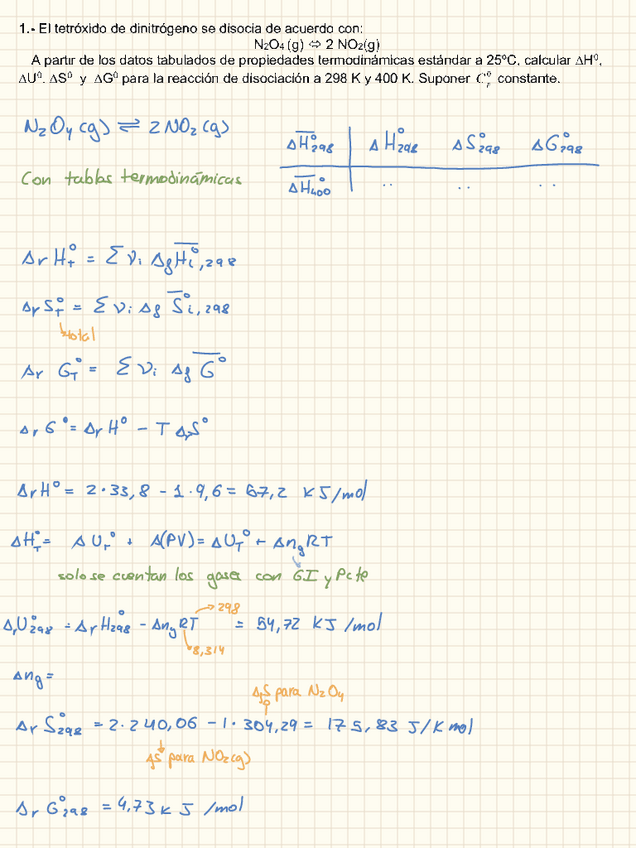 1.- El tetróxido de dinitrógeno se disocia de acuerdo con:
N₂O₄ (g) ⇔ 2 NO₂(g)
A partir de los datos tabulados de propiedades termodinámicas estándar a 25ºC, calcular ΔH⁰,
ΔU⁰, ΔS⁰ y ΔG⁰ para la reacción de disociación a 298 K y 400 K. Suponer C constante.
N₂O₄(g) ⇌ 2NO₂(g)
ΔH̅°₂₉₈ | ΔH°₂₉₈ ΔS°₂₉₈ ΔG°₂₉₈
Con tablas termodinámicas
ΔH̅°₄₀₀ | .. .. ..
ΔrH°T = Σνi ΔfH̅°i,298
ΔrS°T = Σνi Δf S̅°i,298
total
Δr G°T = Σνi Δf G̅°
ΔrG° = ΔrH° - T ΔrS°
ΔrH° = 2·33,8 - 1·9,6 = 67,2 KJ/mol
ΔH°T = ΔUT° + Δ(PV) = ΔUT° + ΔngRT
solo se cuentan los gases con GI y P cte
298
ΔrU°298 = ΔrH298° - ΔngRT = 54,72 KJ/mol
8,314
Δng =
ΔfS para N₂O₄
Δr S°298 = 2·240,06 - 1·304,29 = 175,83 J/K mol
ΔfS para NO₂(g)
Δr G°298 = 4,73 KJ/mol